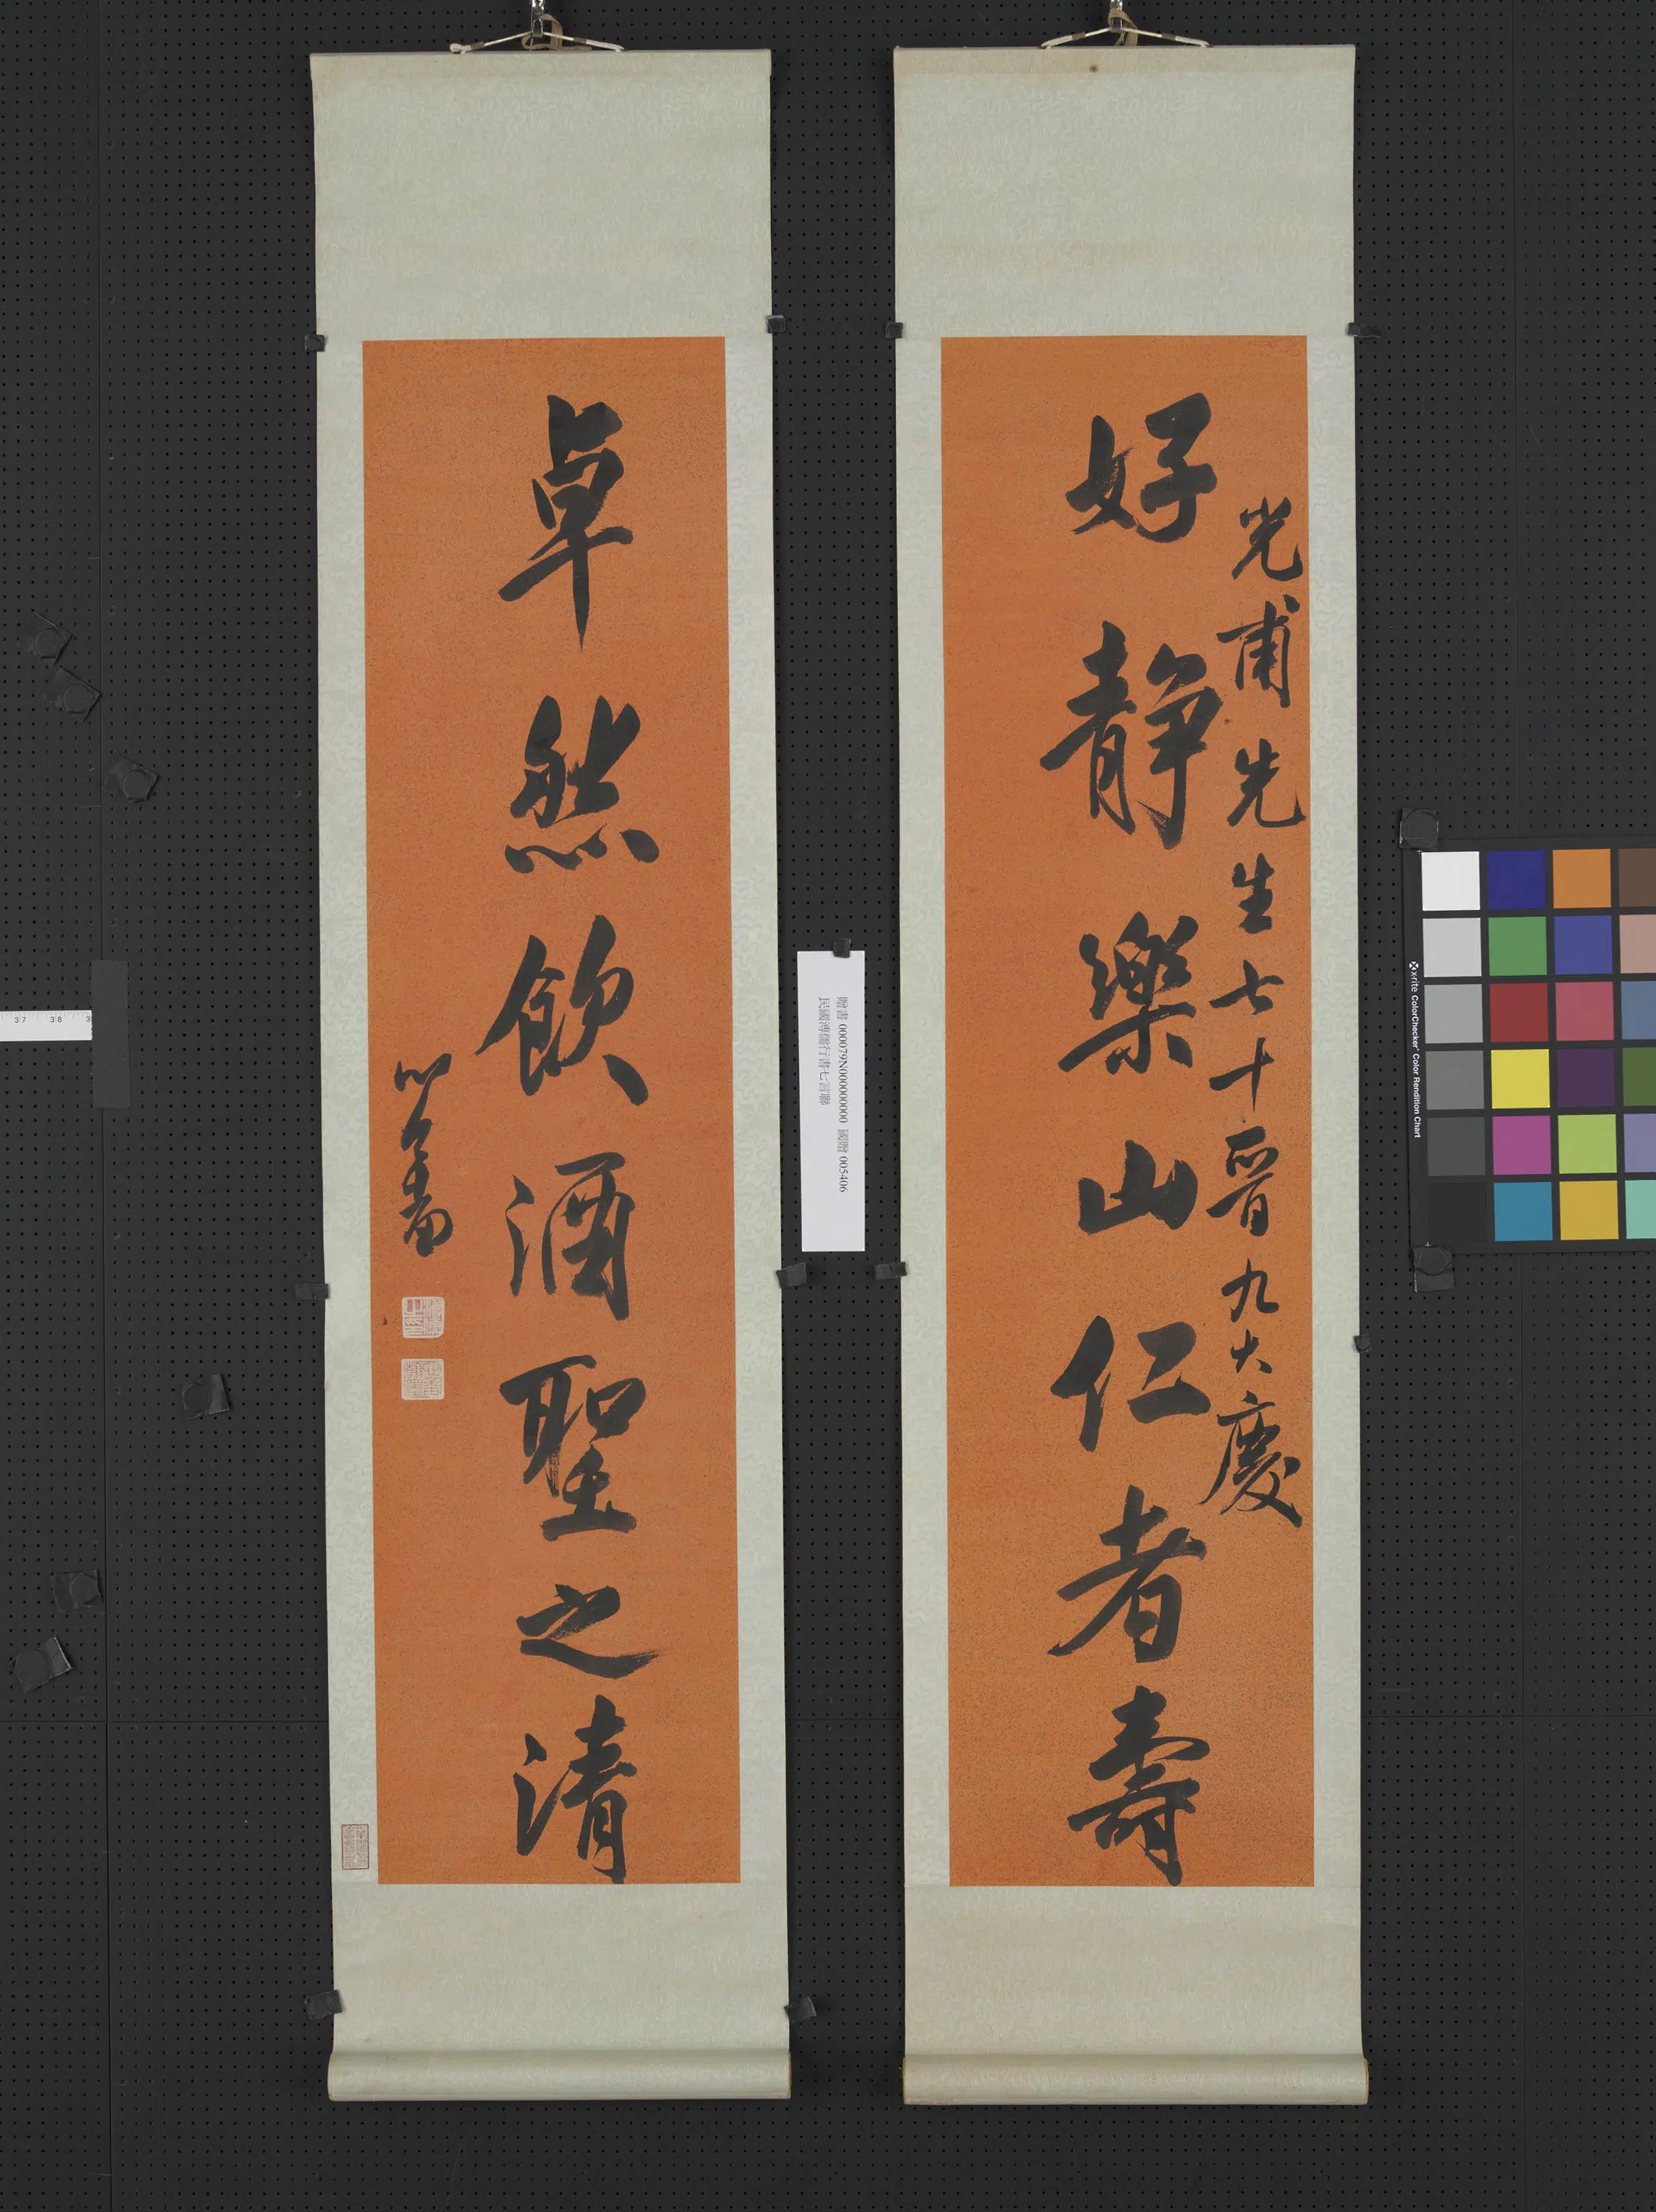 光甫先生七十晋九大慶
好靜樂山仁者壽
卓然飲酒聖之清
心畬
贈書 000079N000000000 國贈 005406
民國溥儒行書七言聯
xrite ColorChecker Color Rendition Chart
37 38